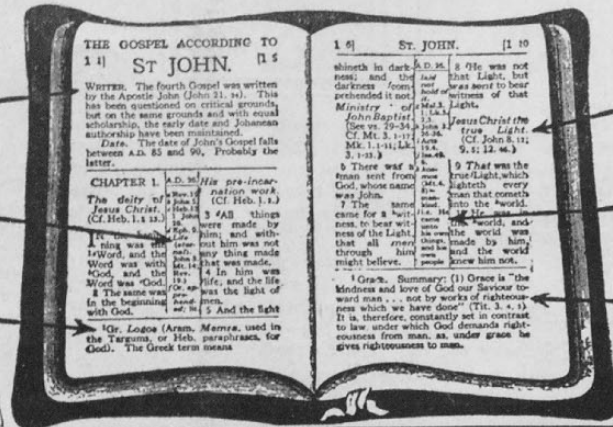 THE GOSPEL ACCORDING TO
1 1] ST JOHN. [1 5
WRITER. The fourth Gospel was written
by the Apostle John (John 21. 24). This
has been questioned on critical grounds,
but on the same grounds and with equal
scholarship, the early date and Johanean
authorship have been maintained.
Date. The date of John's Gospel falls
between A.D. 85 and 90. Probably the
latter.
CHAPTER 1.
The deity of
Jesus Christ.
(Cf. Heb. 1.
IN the
ning was the
Word, and the
Word was with
God, and the
Word was God.
2 The same was
in the beginning
with God.
A.D. 26.
His pre-incar-
nation work.
(Cf. Heb. 1.
3 All things
were made by
him; and with-
out him was not
any thing made
that was made.
4 In him was
life; and the life
was the light of
men.
5 And the light
Gr. Logos (Aram. Memra, used in
the Targums, or Heb. paraphrases, for
God). The Greek term means
1 6] ST. JOHN. [1 10
shineth in dark-
ness; and the
darkness com-
prehended it not.
Ministry of
John Baptist.
(See vs. 29-34.
Cf. Mt. 3. 1-17;
Mk. 1. 1-11; Lk.
6 There was a
man sent from
God, whose name
was John.
7 The same
came for a wit-
ness, to bear wit-
ness of the Light,
that all men
through him
might believe.
A.D. 26.
8 He was not
that Light, but
was sent to bear
witness of that
Light.
Jesus Christ the
true Light.
(Cf. John 8. 12;
9. 5; 12. 46.)
9 That was the
true Light, which
lighteth every
man that cometh
into the world.
He was in
the world, and
the world was
made by him,
and the world
knew him not.
Grace. Summary: (1) Grace is "the
kindness and love of God our Saviour to-
ward man . . . not by works of righteous-
ness which we have done" (Tit. 3. 4, 5).
It is, therefore, constantly set in contrast
to law, under which God demands right-
eousness from man, as, under grace he
gives righteousness to man.